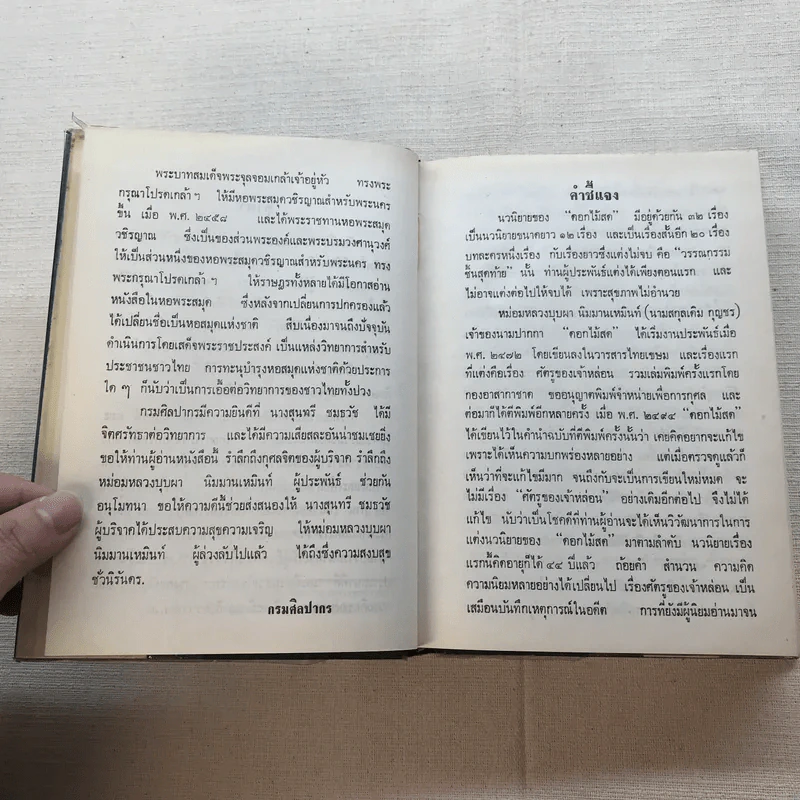 พระบาทสมเด็จพระจุลจอมเกล้าเจ้าอยู่หัว ทรงพระ
กรุณาโปรดเกล้า ฯ ให้มีหอพระสมุดวชิรญาณสำหรับพระนคร
ขึ้น เมื่อ พ.ศ. ๒๔๕๘ และได้พระราชทานหอพระสมุด
วชิรญาณ ซึ่งเป็นของส่วนพระองค์และพระบรมวงศานุวงศ์
ให้เป็นส่วนหนึ่งของหอพระสมุดวชิรญาณสำหรับพระนคร ทรง
พระกรุณาโปรดเกล้า ฯ ให้ราษฎรทั้งหลายได้มีโอกาสอ่าน
หนังสือในหอพระสมุด ซึ่งหลังจากเปลี่ยนการปกครองแล้ว
ได้เปลี่ยนชื่อเป็นหอสมุดแห่งชาติ สืบเนื่องมาจนถึงปัจจุบัน
ดำเนินการโดยเสด็จพระราชประสงค์ เป็นแหล่งวิทยาการสำหรับ
ประชาชนชาวไทย การทะนุบำรุงหอสมุดแห่งชาติด้วยประการ
ใด ๆ ก็นับว่าเป็นการเอื้อต่อวิทยาการของชาวไทยทั้งปวง
กรมศิลปากรมีความยินดีที่ นางสุนทรี ชมธวัช ได้มี
จิตศรัทธาต่อวิทยาการ และได้มีความเสียสละอันน่าชมเชยยิ่ง
ขอให้ท่านผู้อ่านหนังสือนี้ รำลึกถึงกุศลจิตของผู้บริจาค รำลึกถึง
หม่อมหลวงบุบผา นิมมานเหมินท์ ผู้ประพันธ์ ช่วยกัน
อนุโมทนา ขอให้ความดีนี้ช่วยส่งสนองให้ นางสุนทรี ชมธวัช
ผู้บริจาคได้ประสบความสุขความเจริญ ให้หม่อมหลวงบุบผา
นิมมานเหมินท์ ผู้ล่วงลับไปแล้ว ได้ถึงซึ่งความสงบสุข
ชั่วนิรันดร.
กรมศิลปากร
คำชี้แจง
นวนิยายของ "ดอกไม้สด" มีอยู่ด้วยกัน ๓๒ เรื่อง
เป็นนวนิยายขนาดยาว ๑๒ เรื่อง และเป็นเรื่องสั้นอีก ๒๐ เรื่อง
บทละครหนึ่งเรื่อง กับเรื่องยาวซึ่งแต่งไม่จบ คือ "วรรณกรรม
ชิ้นสุดท้าย" นั้น ท่านผู้ประพันธ์แต่งได้เพียงตอนแรก และ
ไม่อาจแต่งต่อไปให้จบได้ เพราะสุขภาพไม่อำนวย
หม่อมหลวงบุบผา นิมมานเหมินท์ (นามสกุลเดิม กุญชร)
เจ้าของนามปากกา "ดอกไม้สด" ได้เริ่มงานประพันธ์เมื่อ
พ.ศ. ๒๔๗๒ โดยเขียนลงในวารสารไทยเขษม และเรื่องแรก
ที่แต่งคือเรื่อง ศัตรูของเจ้าหล่อน รวมเล่มพิมพ์ครั้งแรกโดย
กองอาสากาชาด ขออนุญาตพิมพ์จำหน่ายเพื่อการกุศล และ
ต่อมาก็ได้ตีพิมพ์อีกหลายครั้ง เมื่อ พ.ศ. ๒๔๙๔ "ดอกไม้สด"
ได้เขียนไว้ในคำนำฉบับที่ตีพิมพ์ครั้งนั้นว่า เคยคิดอยากจะแก้ไข
เพราะได้เห็นความบกพร่องหลายอย่าง แต่เมื่อตรวจดูแล้วก็
เห็นว่าที่จะแก้ไขมีมาก จนถึงกับจะเป็นการเขียนใหม่หมด จะ
ไม่มีเรื่อง "ศัตรูของเจ้าหล่อน" อย่างเดิมอีกต่อไป จึงไม่ได้
แก้ไข นับว่าเป็นโชคดีที่ท่านผู้อ่านจะได้เห็นวิวัฒนาการในการ
แต่งนวนิยายของ "ดอกไม้สด" มาตามลำดับ นวนิยายเรื่อง
แรกนี้คิดอายุก็ได้ ๔๔ ปีแล้ว ถ้อยคำ สำนวน ความคิด
ความนิยมหลายอย่างได้เปลี่ยนไป เรื่องศัตรูของเจ้าหล่อน เป็น
เสมือนบันทึกเหตุการณ์ในอดีต การที่ยังมีผู้นิยมอ่านมาจน